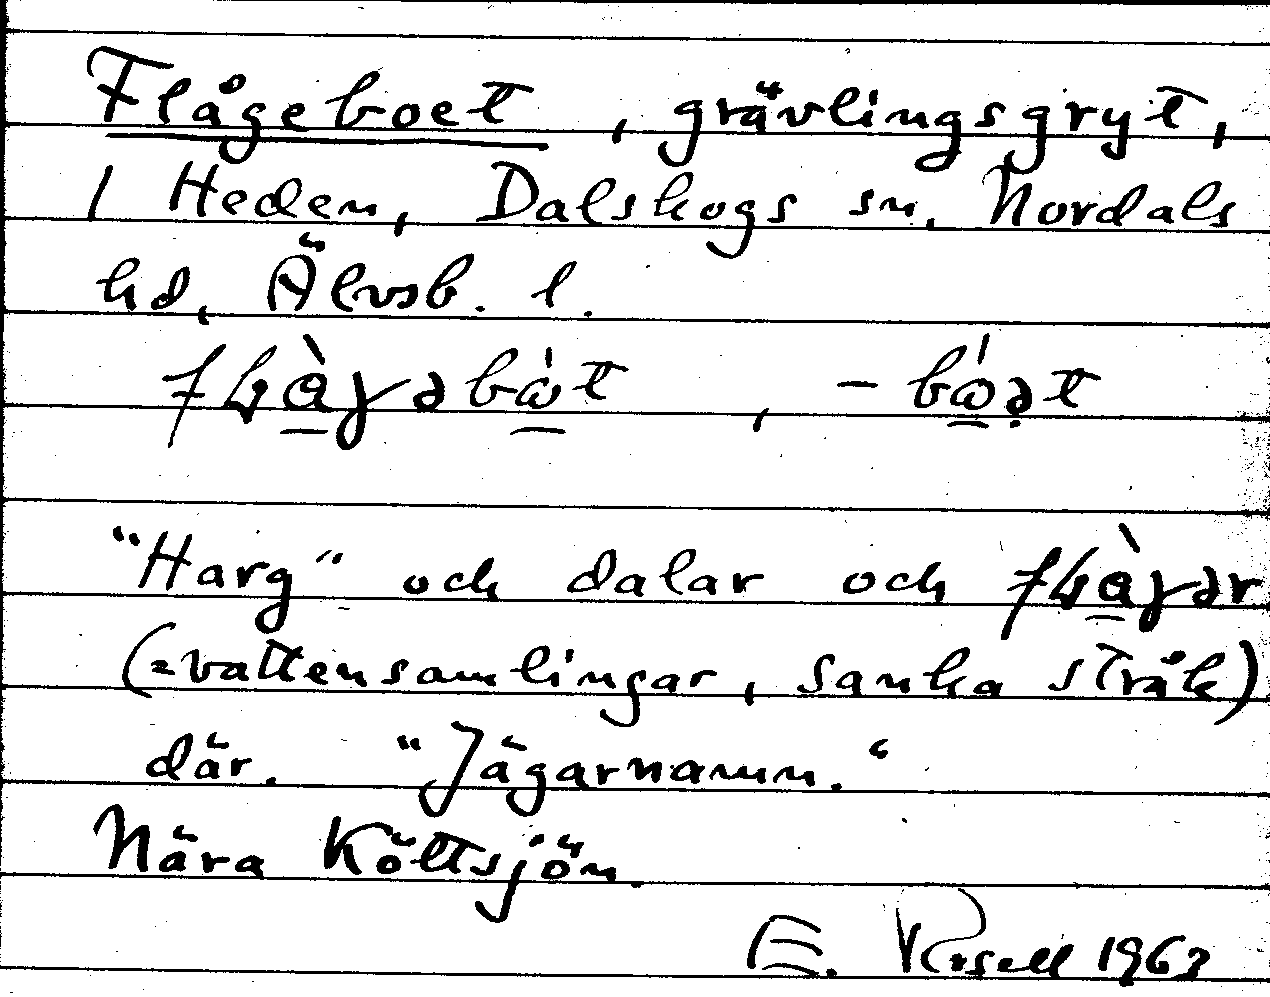 Flågeboet, grävlingsgryt,
1 Heden, Dalskogs sn, Nordals
hd, Älvsb. l.
"Harg" och dalar och
(=vattensamlingar, sanka stråk)
där. "Jägarnamn."
Nära Köttsjön.
E. Rosell 1963